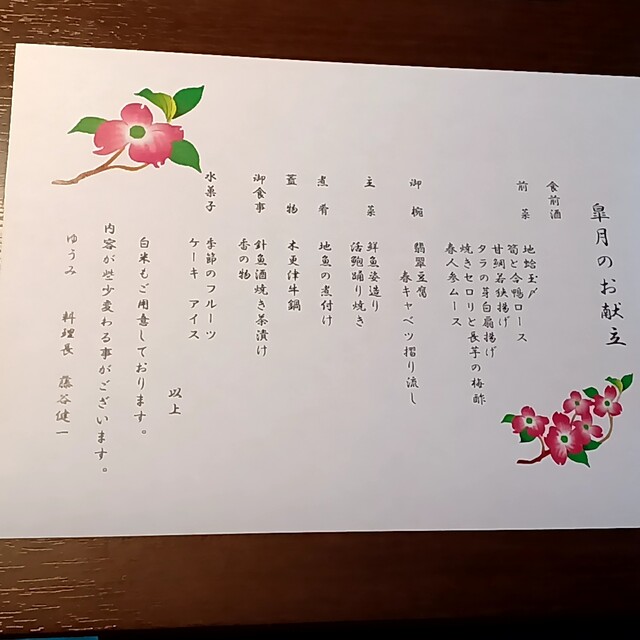 皐月のお献立
食前酒
前菜 地蛤玉〆
筍と合鴨ロース
甘鯛若狭揚げ
タラの芽白扇揚げ
焼きセロリと長芋の梅酢
春人参ムース
御椀 翡翠豆腐
春キャベツ摺り流し
主菜 鮮魚姿造り
活鮑踊り焼き
煮肴 地魚の煮付け
蓋物 木更津牛鍋
御食事 針魚酒焼き茶漬け
香の物
水菓子 季節のフルーツ
ケーキ アイス
以上
白米もご用意しております。
内容が些少変わる事がございます。
ゆうみ 料理長 藤谷健一